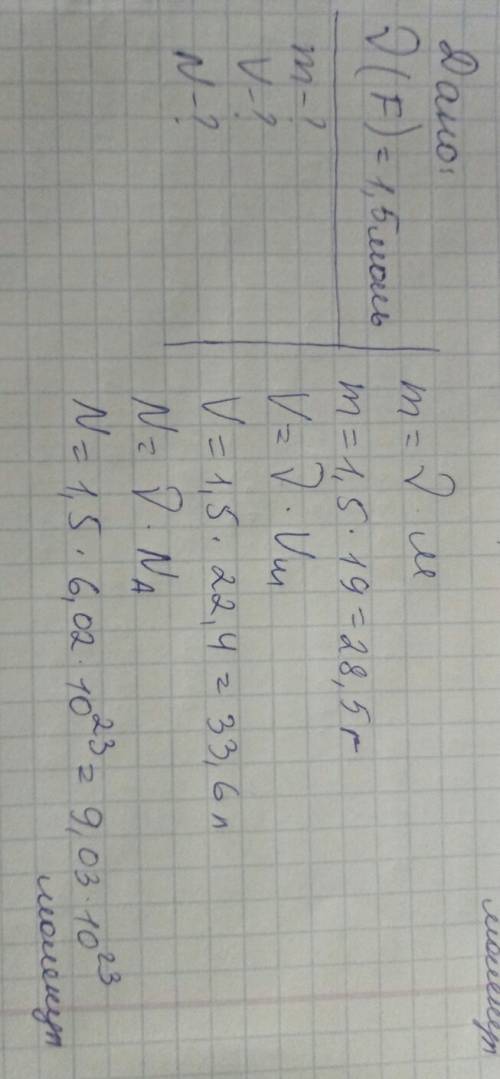 Дано:
ν(F) = 1,5 моль
m - ?
V - ?
N - ?
m = ν · M
m = 1,5 · 19 = 28,5 г
V = ν · Vm
V = 1,5 · 22,4 = 33,6 л
N = ν · NA
N = 1,5 · 6,02 · 10²³ = 9,03 · 10²³
молекул
молекул